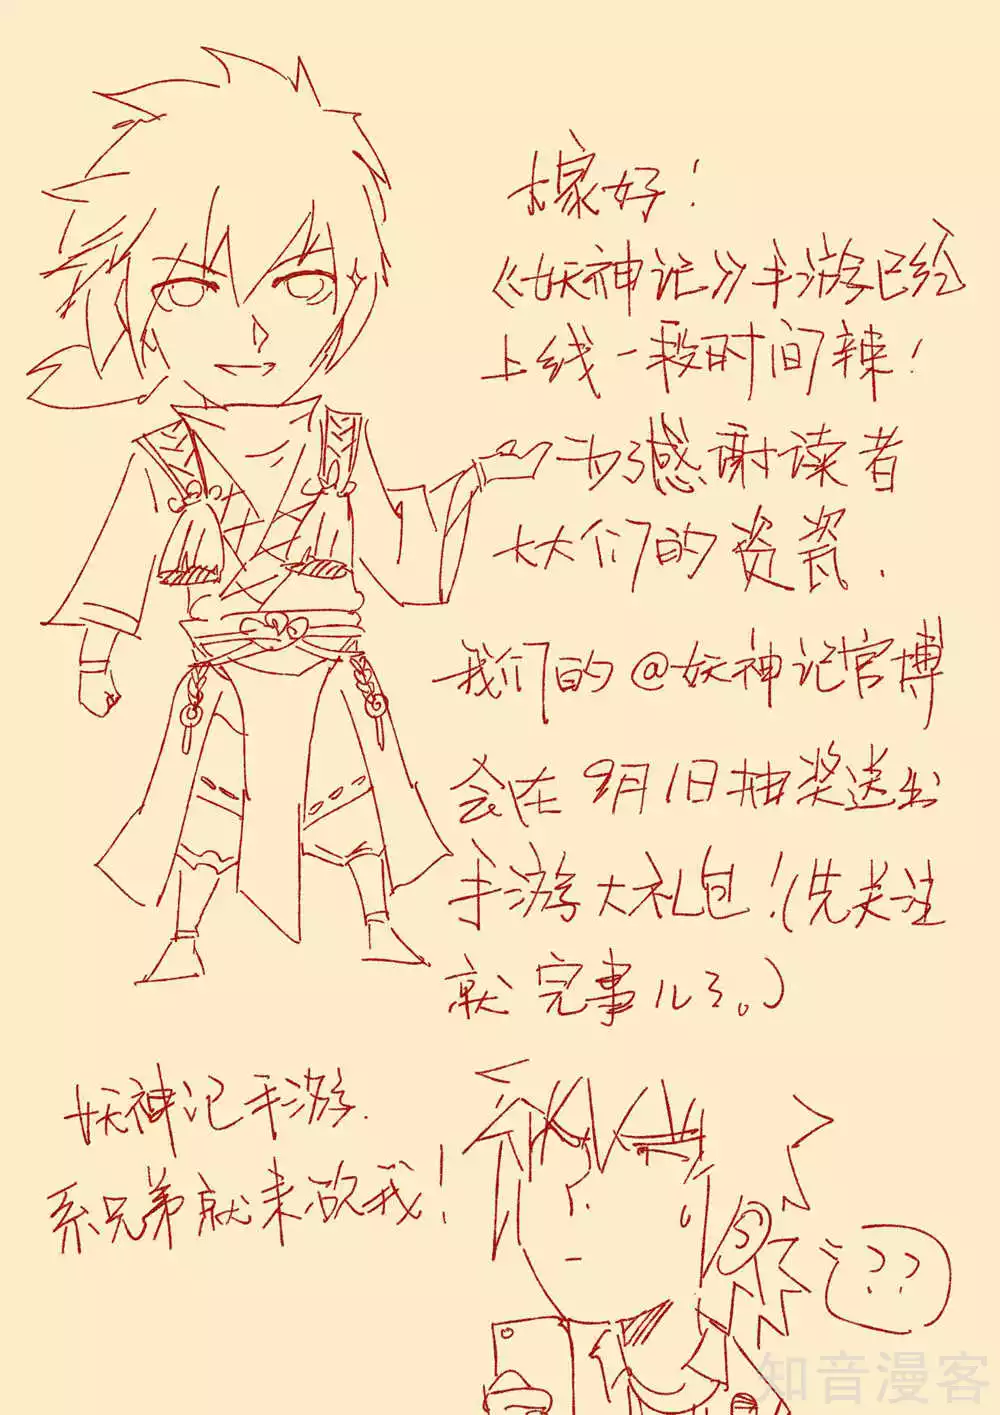 大家好！
《妖神记》手游已经
上线一段时间辣！
为了感谢读者
大大们的资瓷.
我们的@妖神记官博
会在9月1日抽奖送出
手游大礼包！(先关注
就完事儿了。)
妖神记手游.
系兄弟就来砍我！
??
知音漫客